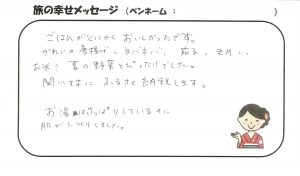 旅の幸せメッセージ (ペンネーム: )
ごはんがとにかくおいしかったです。
かれいの唐揚げ、ネバネバ、茄子、
お米に夏の野菜とぴったりでした。
ふるさと納税します。
お湯はさっぱりしているのに
肌がしっとりしました。